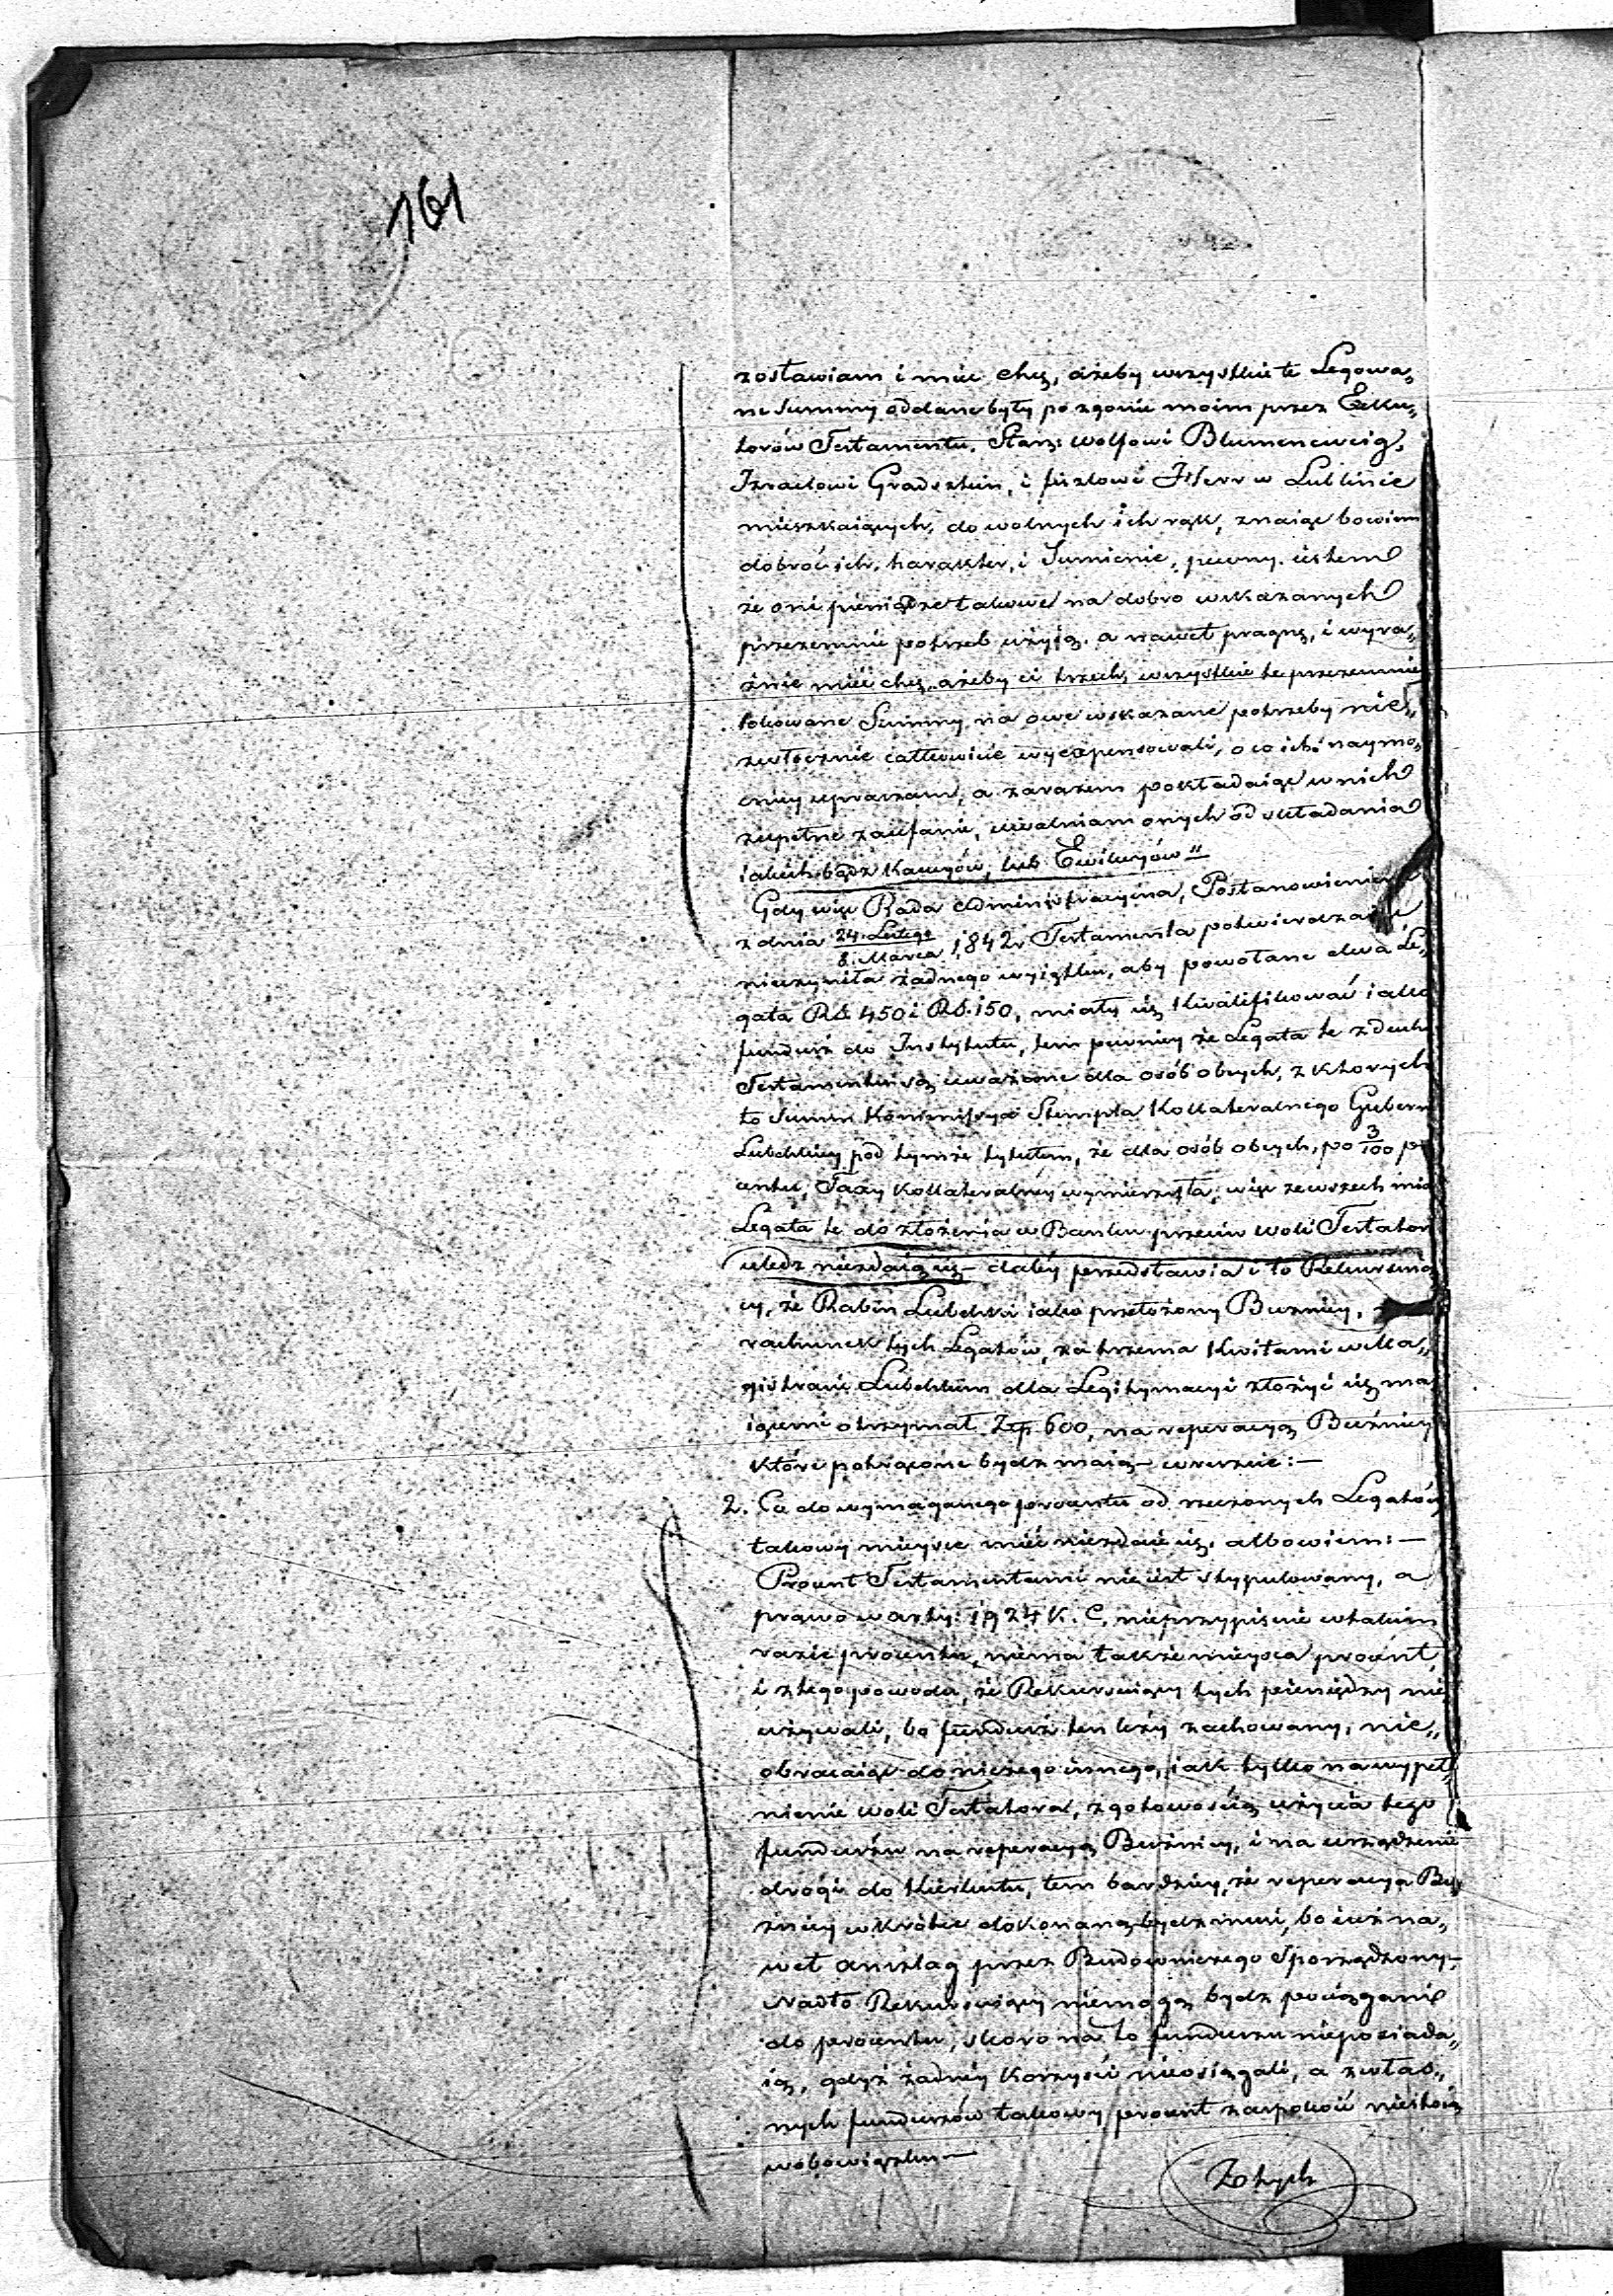 161
zostawiam i mieć chcę, ażeby wszystkie te Legowa„
ne Summy oddane były po zgonie moim przez Exeku„
torów Testamentu, Starz: Wolfowi Blumencweig,
Izraelowi Gradsztein, i Herr w Lublinie
mieszkaiących, do wolnych ich rąk, znaiąc bowiem
dobroć ich, harakter, i Sumienie, pewny iestem
że oni pieniądze takowe na dobro wskazanych
przezemnie potrzeb użyią, a nawet pragnę, i wyra„
źnie mieć chcę, ażeby ci trzech, wszystkie te przezemnie
lokowane Summy, na owe wskazane potrzeby nie„
zwłocznie całkowicie wyexpensowali, o co ich naymo„
cniey upraszam, a zarazem pokładaiąc w nich
zupełne zaufanie, uwalniam onych od składania
iakich bądź Kaucyów, lub Ewikcyów"
Gdy więc Rada Administracyina, Postanowieniem
z dnia 24. Lutego / 8. Marca 1842 r Testamenta potwierdzaiąc
nieczyniła żadnego wyiątku, aby powołane dwa Le„
gata RS. 450 i RS. 150, miały się kwalifikować iako
fundusz do Instytutu, tem pewniey że Legata te z duch
Testamentu są uważane dla osób obcych, z których
to Summ Kommissya Stempla Kollateralnego Gubern
Lubelskiey pod tymże tytułem, że dla osób obcych, po 3/100 pr
centu, Taxy Kollateralney wymierzyła, więc ze wszech mia
Legata te do złożenia w Banku przeciw woli Testator
uledz niezdaią się — daléy przedstawia i to Rekursuią
cy, że Rabin Lubelski iako przełożony Buznicy,
rachunek tych Legatów, za trzema Kwitami w Ma„
gistracie Lubelskim dla Legitymacyi złożyć się ma
iącemi otrzymał Złp. 600, na reperacyą Bużnicy
które potrącone bydź maią — wreszcie: —
2. Co do wymaganego procentu od rzeczonych Legatów
takowy mieysce mieć niezdaie się, albowiem: —
Procent Testamentami nie iest stypulowany, a
prawo w arty: 1924 K. C, nieprzypisuie w takim
razie procentu, niema także mieysca procent
i z tego powodu, że Rekursuiący tych pieniędzy nie
używali, bo fundusz ten leży zachowany, nie„
obracaiąc do niczego innego, iak tylko na wypeł„
nienie woli Testatora, z gotowością użycia tego
funduszu na reperacyą Bużnicy, i na urządzenie
drogi do Kierkutu, tem bardziey, że reperacya Bu„
żnicy wkrótce dokonaną bydź musi, bo iuż na„
wet anszlag przez Budowniczego sporządzony —
Nadto Rekursuiący niemogą bydź pociągani
do procentu, skoro na to funduszu nieposiada„
ią, gdyż żadnéy korzyści nieosiągali, a z włas„
nych funduszów takowy procent zaspokoić niestoią
w obowiązku —
Z tych